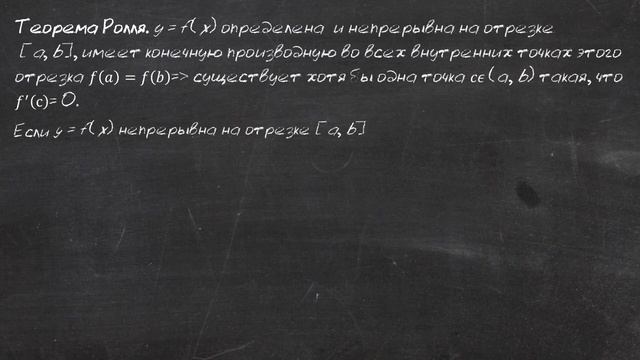 Теорема Ролля. y = f(x) определена и непрерывна на отрезке
[a, b], имеет конечную производную во всех внутренних точках этого
отрезка f(a) = f(b)=> существует хотя бы одна точка cϵ(a, b) такая, что
f′(c)= 0.
Если y = f(x) непрерывна на отрезке [a, b]